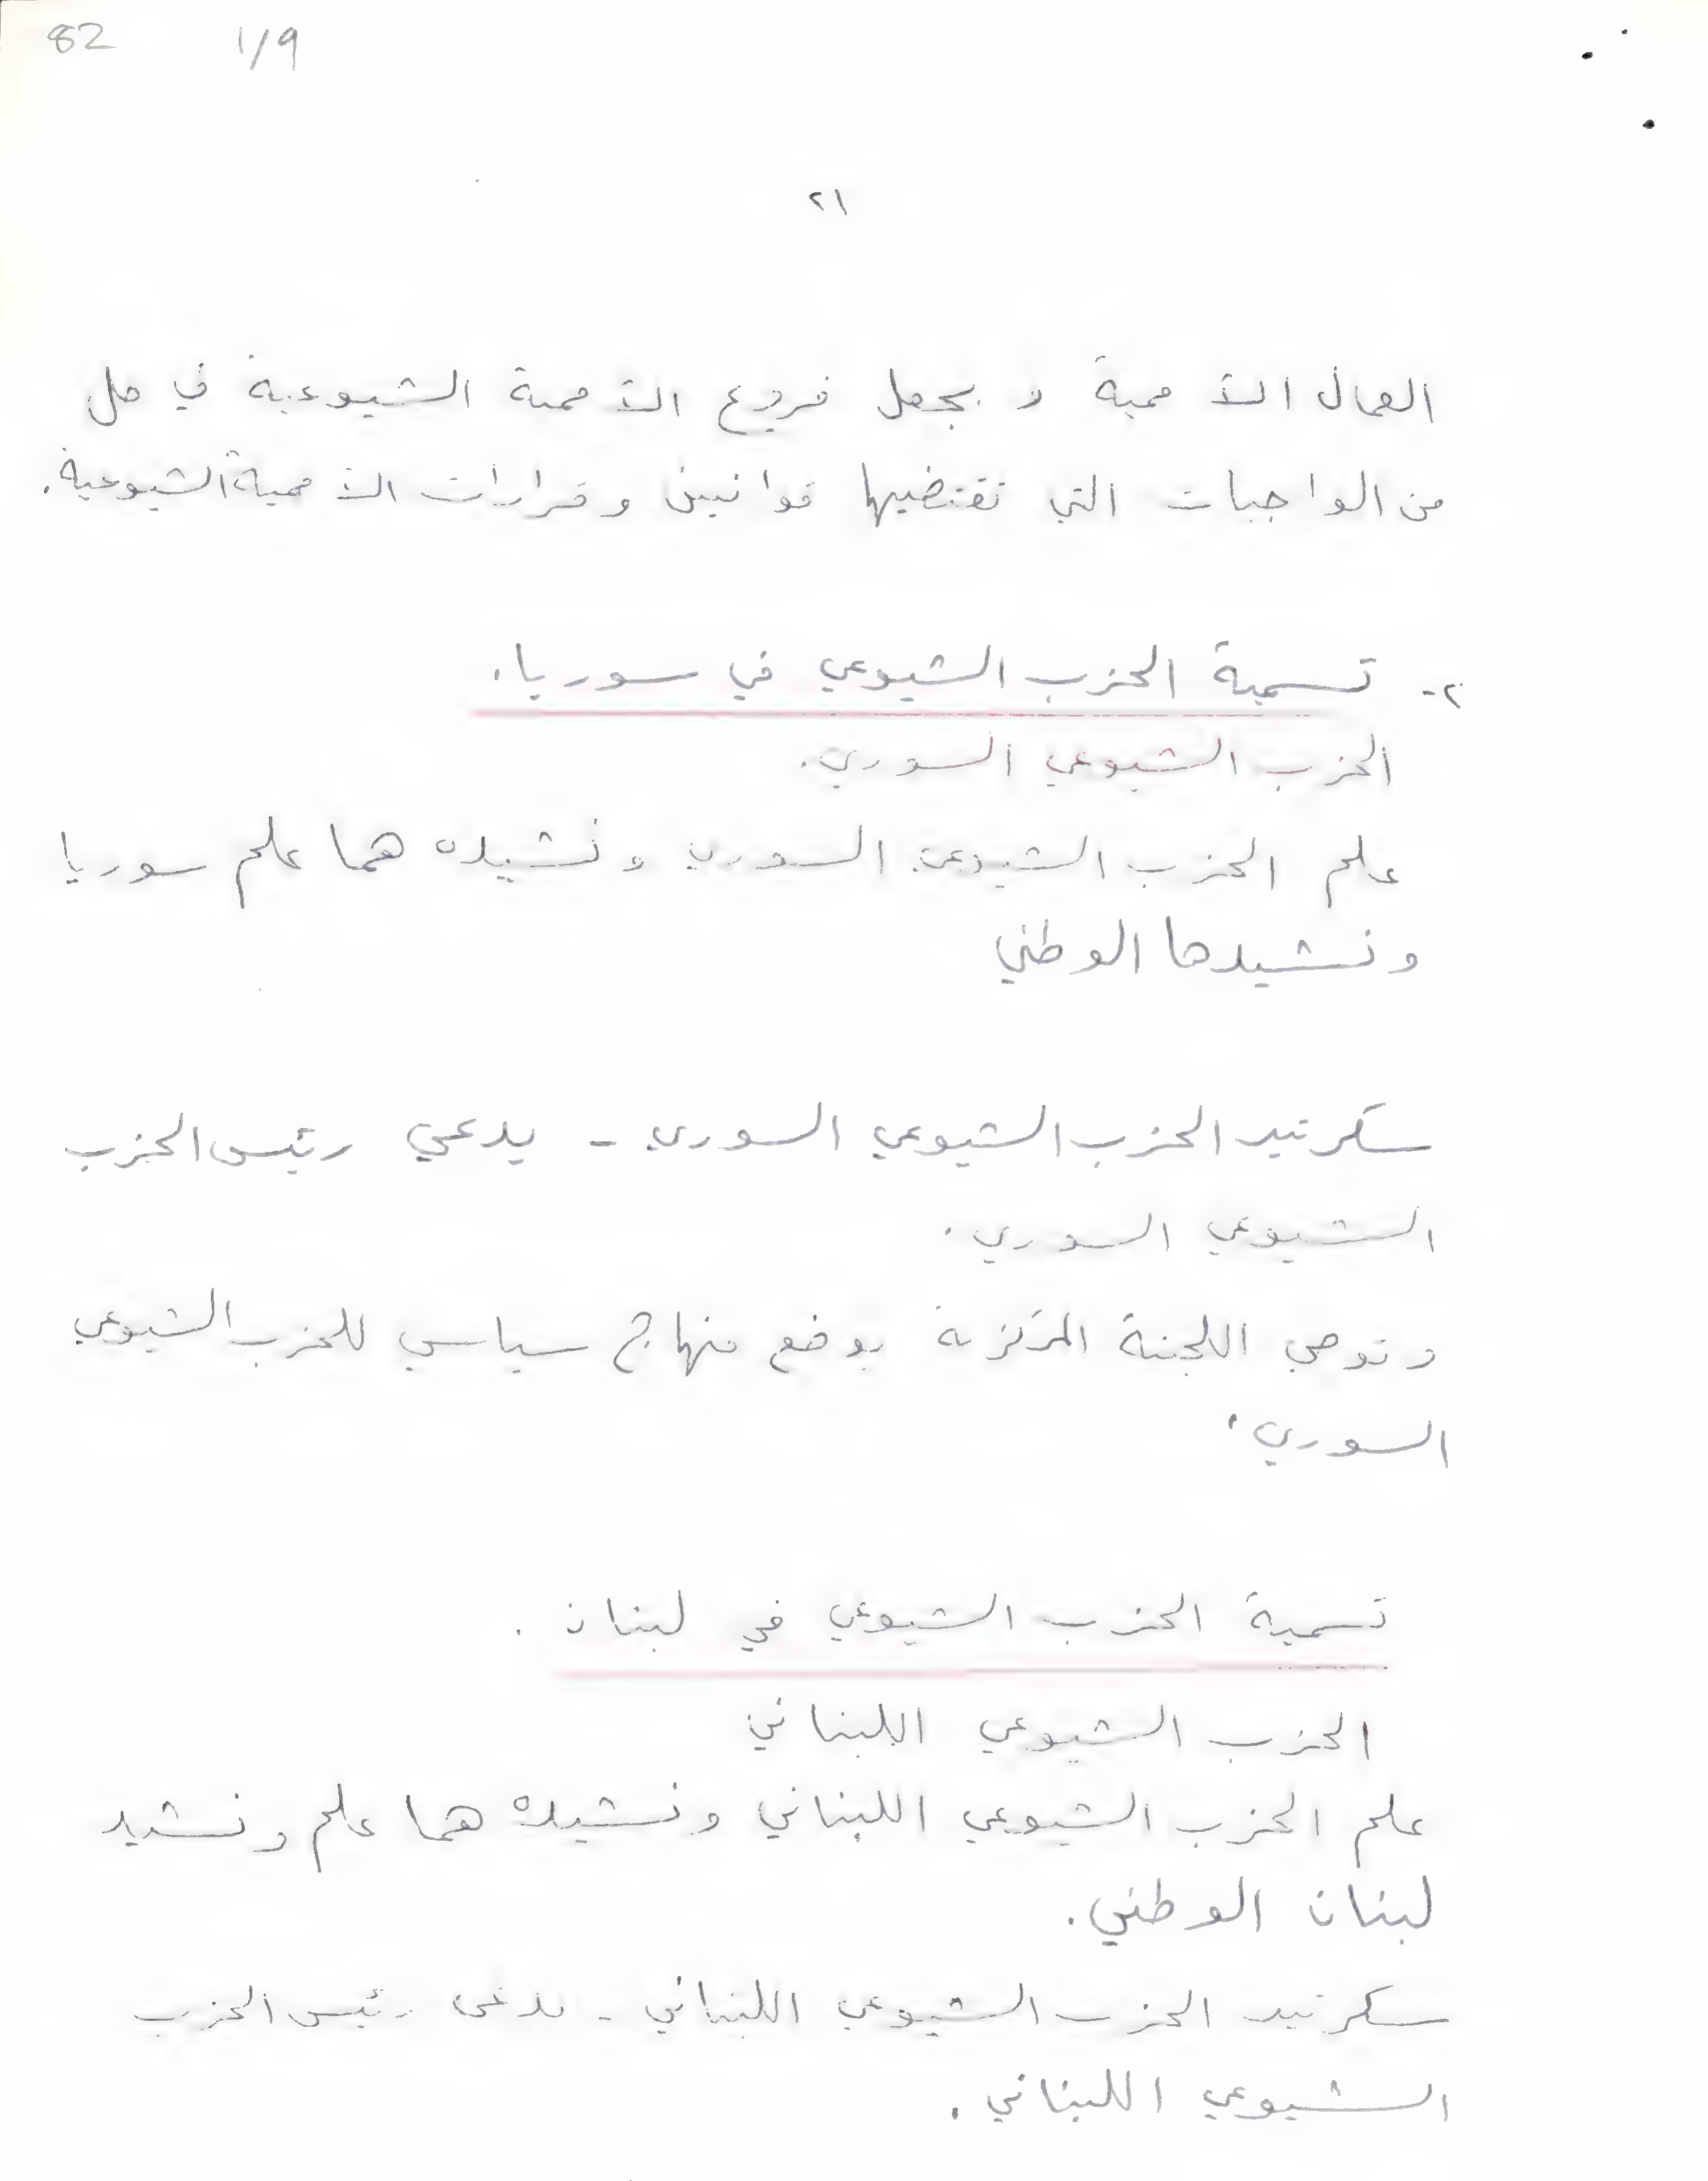 82 1/9
٢١
العمال الأممية و يجعل فروع الأممية الشيوعية في حل
من الواجبات التي تقتضيها قوانين وقرارات الأممية الشيوعية.
٢- تسمية الحزب الشيوعي في سوريا.
الحزب الشيوعي السوري.
علم الحزب الشيوعي السوري ونشيده هما علم سوريا
ونشيدها الوطني
سكرتير الحزب الشيوعي السوري - يدعى رئيس الحزب
الشيوعي السوري.
وتوصي اللجنة المركزية بوضع منهاج سياسي للحزب الشيوعي
السوري.
تسمية الحزب الشيوعي في لبنان.
الحزب الشيوعي اللبناني
علم الحزب الشيوعي اللبناني ونشيده هما علم ونشيد
لبنان الوطني.
سكرتير الحزب الشيوعي اللبناني - يدعى رئيس الحزب
الشيوعي اللبناني.